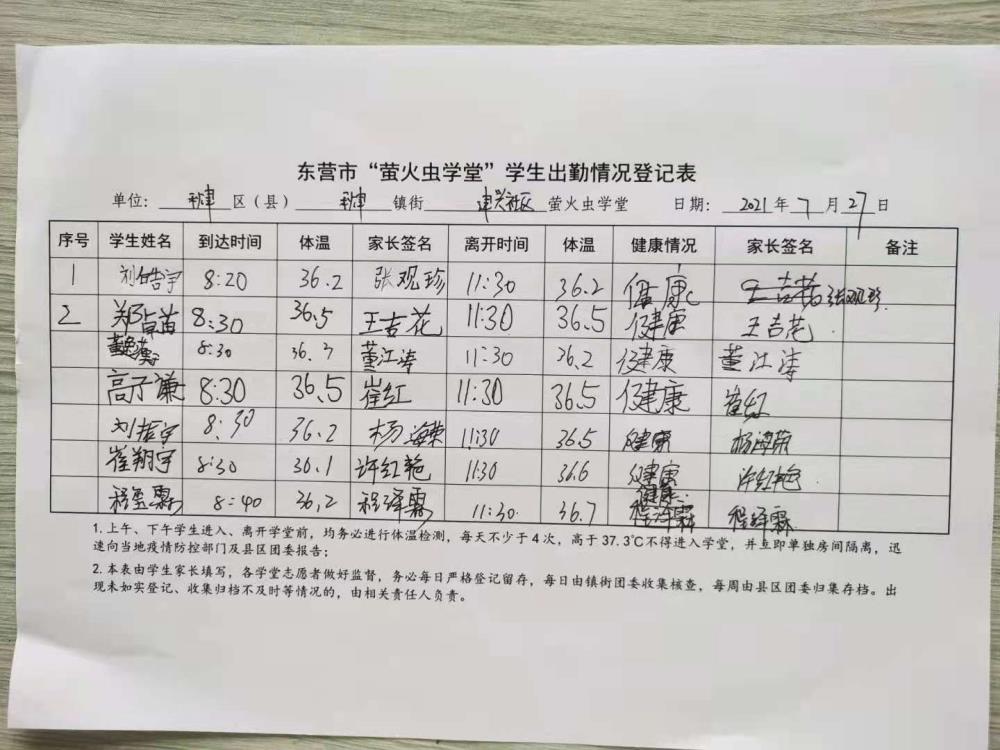 东营市“萤火虫学堂”学生出勤情况登记表
单位： 区（县） 镇街 建兴社区 萤火虫学堂 日期： 2021 年 7 月 27 日
序号 学生姓名 到达时间 体温 家长签名 离开时间 体温 健康情况 家长签名 备注
1 刘皓宇 8:20 36.2 张观珍 11:30 36.2 健康 张观珍
2 8:30 36.5 王吉花 11:30 36.5 健康 王吉花
8:30 36.7 董江涛 11:30 36.2 健康 董江涛
高子谦 8:30 36.5 崔红 11:30 36.5 健康 崔红
刘振宇 8:30 36.2 杨海荣 11:30 36.5 健康 杨海荣
崔翔宇 8:30 36.1 许红艳 11:30 36.6 健康 许红艳
8:40 36.2 程泽霖 11:30 36.7 健康 程泽霖 程泽霖
1. 上午、下午学生进入、离开学堂前，均务必进行体温检测，每天不少于 4 次，高于 37.3℃不得进入学堂，并立即单独房间隔离，迅
速向当地疫情防控部门及县区团委报告；
2. 本表由学生家长填写，各学堂志愿者做好监督，务必每日严格登记留存，每日由镇街团委收集核查，每周由县区团委归集存档。出
现未如实登记、收集归档不及时等情况的，由相关责任人负责。